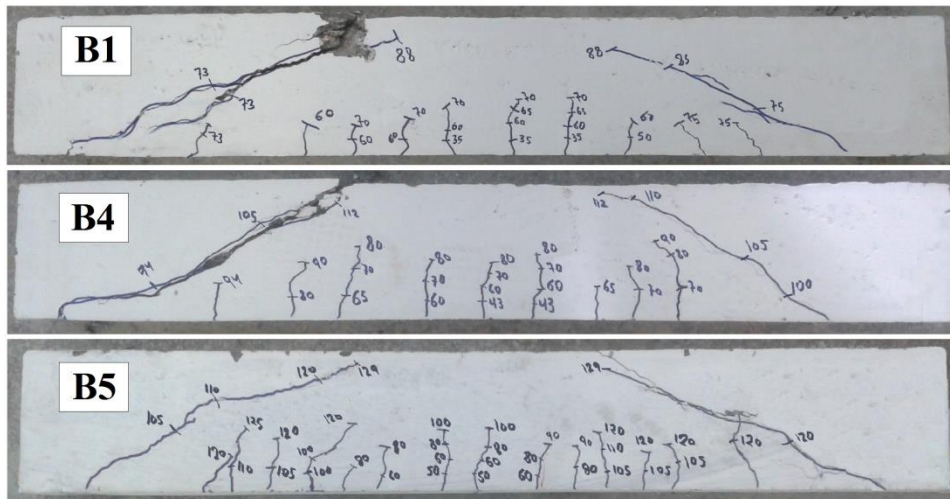 B1
88
88
85
73
73
75
73
60
70
60
70
60
70
60
35
70
65
60
35
70
65
60
35
60
50
75
75
B4
105
112
94
94
90
80
80
70
65
80
70
60
80
70
60
43
80
70
60
43
65
80
70
90
80
70
112
110
105
100
B5
105
110
120
129
120
125
110
120
105
120
100
100
80
80
60
100
80
60
50
100
80
60
50
90
80
60
90
80
120
110
105
120
105
120
105
129
120
120